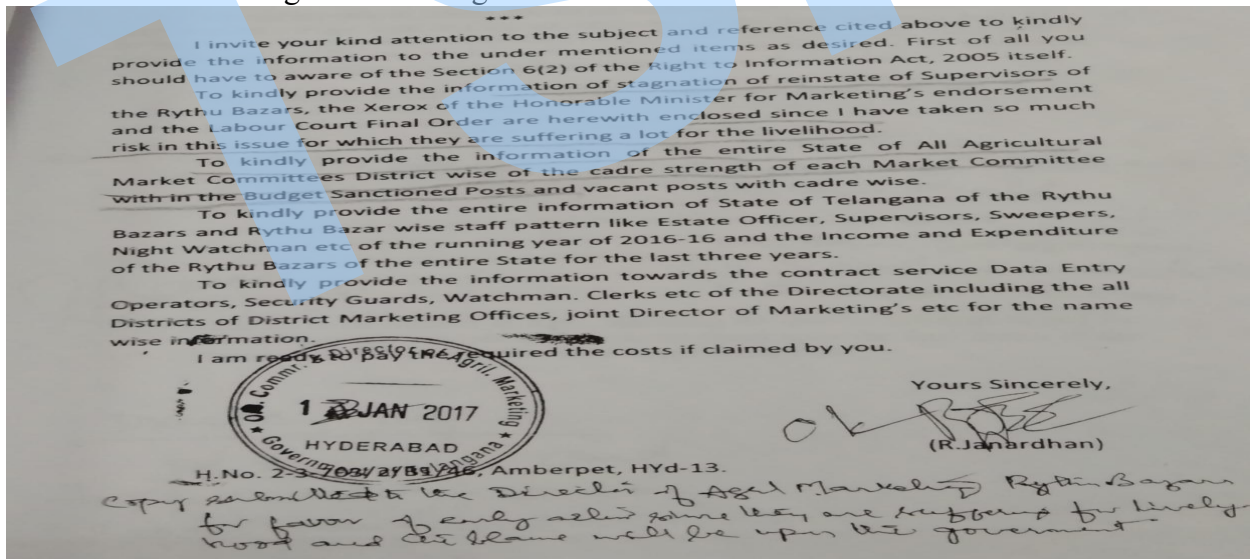 ***
I invite your kind attention to the subject and reference cited above to kindly
provide the information to the under mentioned items as desired. First of all you
should have to aware of the Section 6(2) of the Right to Information Act, 2005 itself.
To kindly provide the information of stagnation of reinstate of Supervisors of
the Rythu Bazars, the Xerox of the Honorable Minister for Marketing's endorsement
and the Labour Court Final Order are herewith enclosed since I have taken so much
risk in this issue for which they are suffering a lot for the livelihood.
To kindly provide the information of the entire State of All Agricultural
Market Committees District wise of the cadre strength of each Market Committee
with in the Budget Sanctioned Posts and vacant posts with cadre wise.
To kindly provide the entire information of State of Telangana of the Rythu
Bazars and Rythu Bazar wise staff pattern like Estate Officer, Supervisors, Sweepers,
Night Watchman etc of the running year of 2016-16 and the Income and Expenditure
of the Rythu Bazars of the entire State for the last three years.
To kindly provide the information towards the contract service Data Entry
Operators, Security Guards, Watchman. Clerks etc of the Directorate including the all
Districts of District Marketing Offices, joint Director of Marketing's etc for the name
wise information.
I am ready to pay the required the costs if claimed by you.
Yours Sincerely,
Commr. & Director of Agril. Marketing
JAN 2017
HYDERABAD
Government of Telangana
(R.Janardhan)
H.No. 2-3-703/2/B1/46, Amberpet, HYd-13.
Copy submitted to the Director of Agril Marketing Rythu Bazars
for favor of early action since they are suffering for lively-
hood and the blame will be upon the government